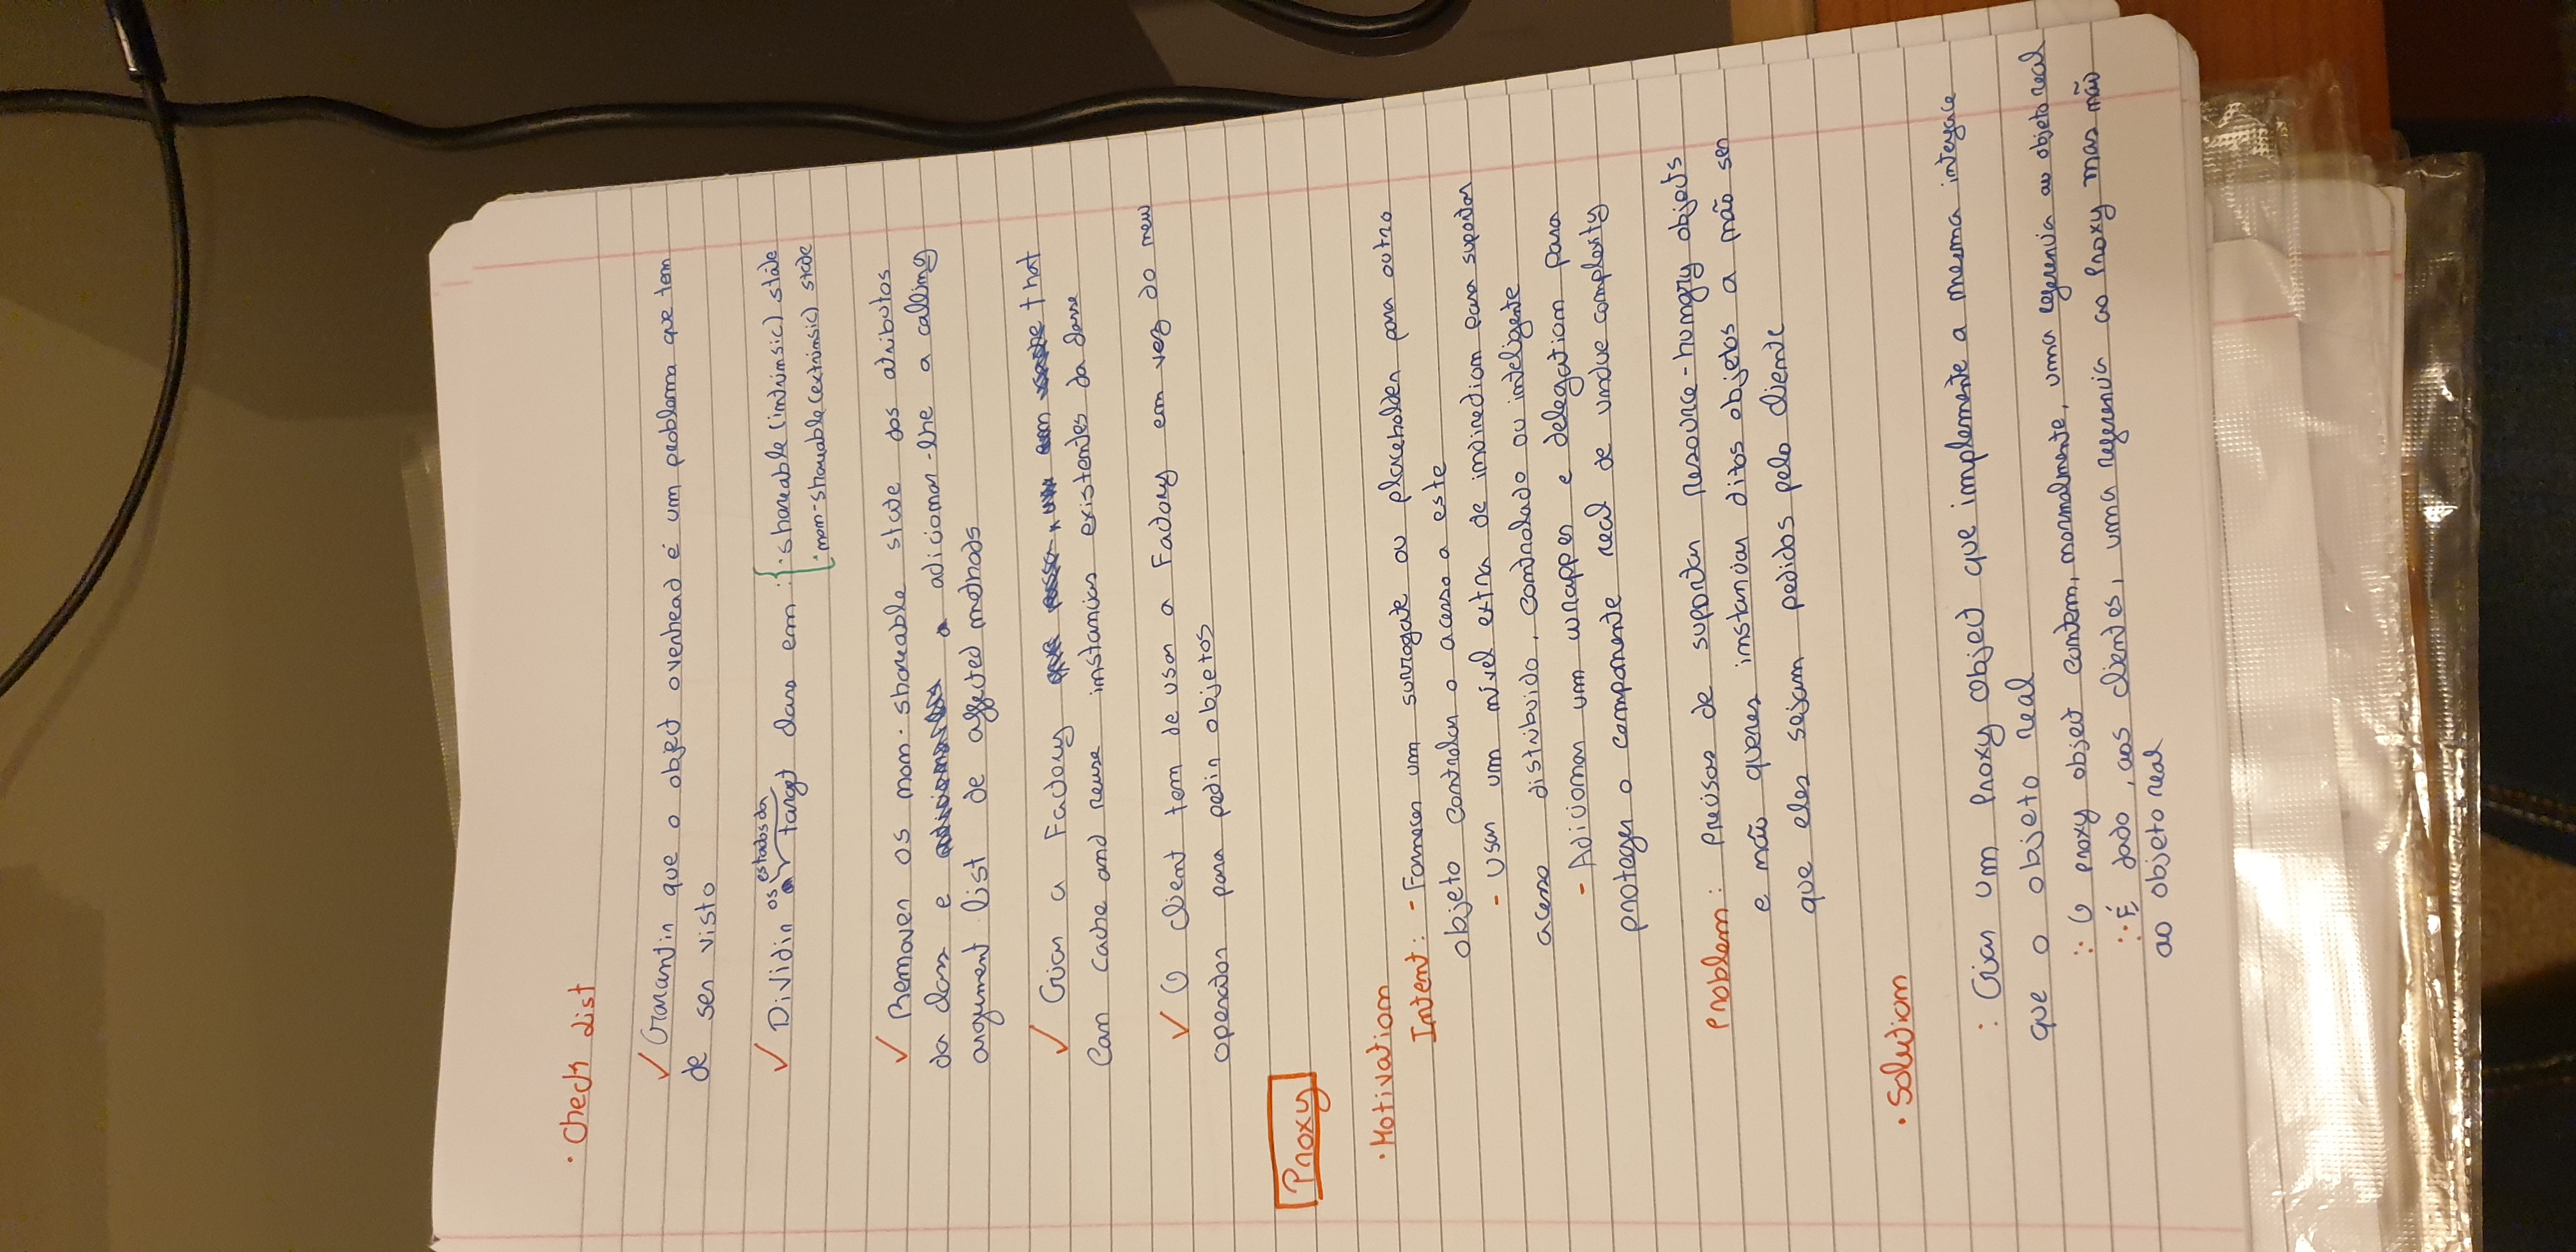 · Check List
✓ Garantir que o object overhead é um problema que tem
de ser visto
✓ Dividir os estados da target class em : { · shareable (intrinsic) state
· non-shareable (extrinsic) state
✓ Remover os non-shareable state dos atributos
da class e adicionar-lhe a calling
argument list de affected methods
✓ Criar a Factory that
can cache and reuse instancias existentes da classe
✓ O client tem de usar a Factory em vez do new
operator para pedir objetos
Proxy
· Motivation
Intent: - Fornecer um surrogate ou placeholder para outro
objeto controlar o acesso a este
- Usar um nível extra de indirection para suportar
acesso distribuido, controlado ou inteligente
- Adicionar um wrapper e delegation para
proteger o componente real de undue complexity
Problem: Precisas de suportar resource-hungry objects
e não queres instanciar ditos objetos a não ser
que eles sejam pedidos pelo cliente
· Solution
: Criar um Proxy Object que implemente a mesma interface
que o objeto real
:· O proxy object contem, normalmente, uma referencia ao objeto real
:· É dado, aos clientes, uma referencia ao Proxy mas não
ao objeto real